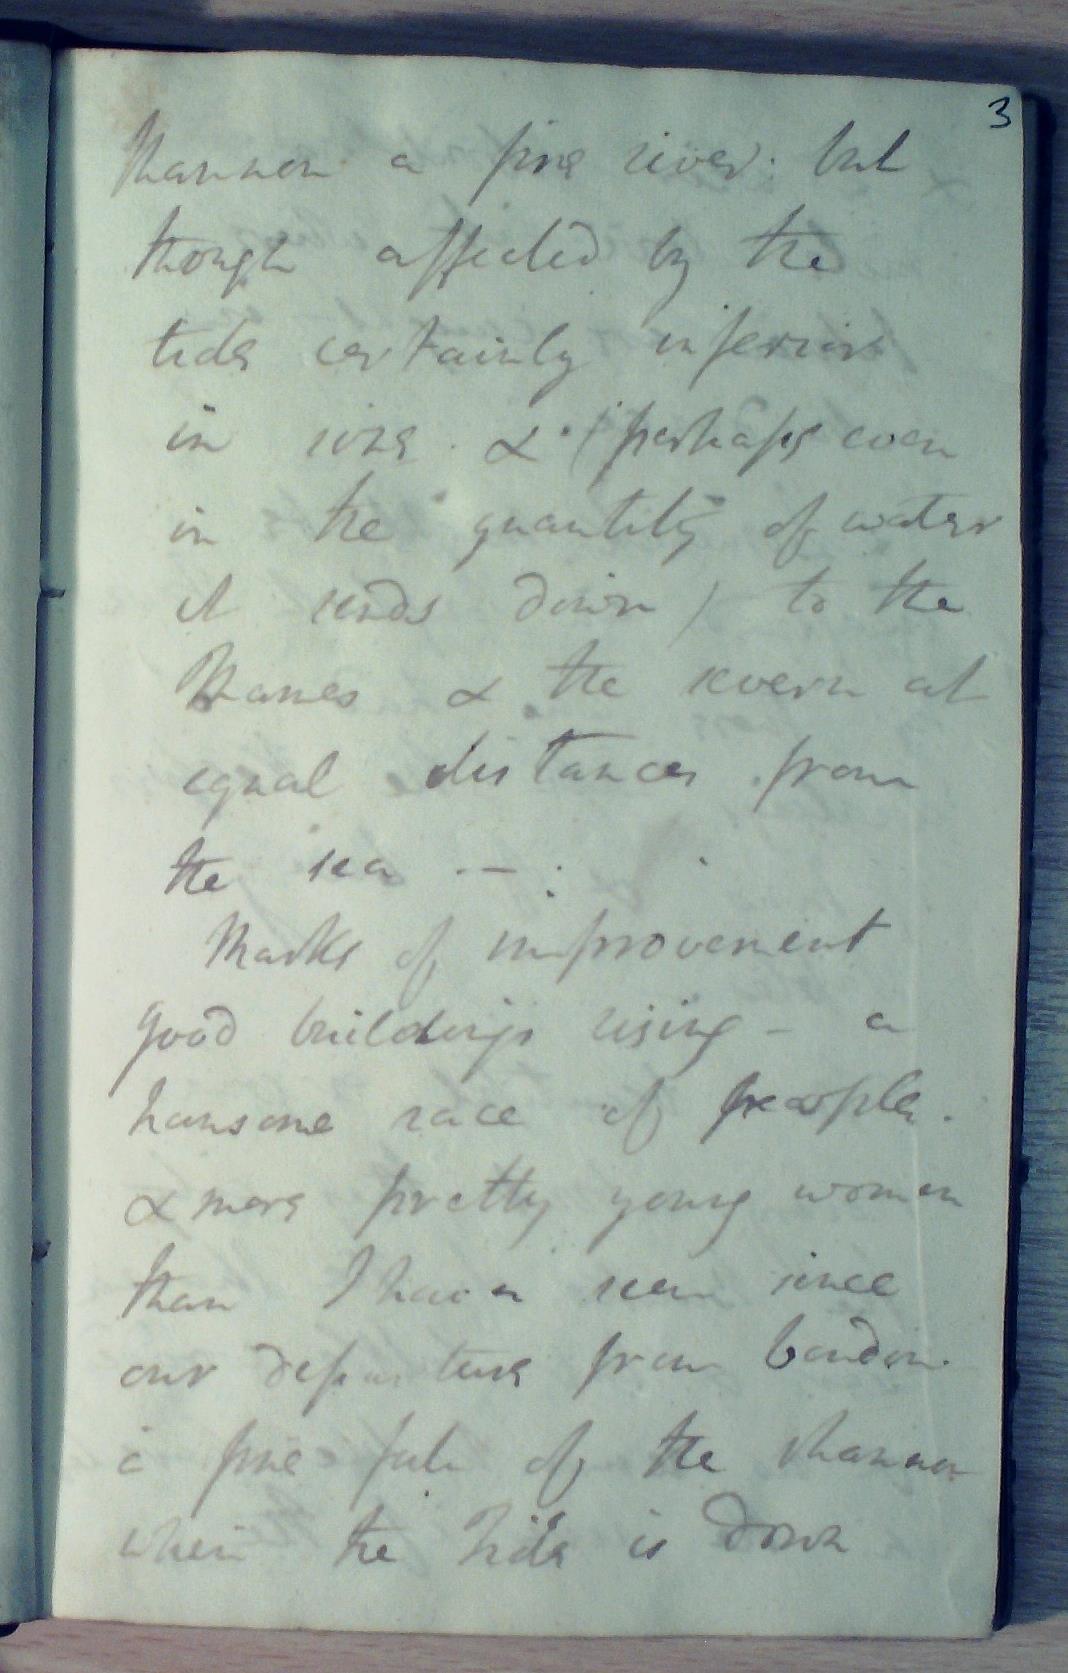 3
Shannon a fine river. but
though affected by the
tide certainly inferior
in size. & (perhaps even
in the quantity of water
it sends down) to the
Thames & the severn at
equal distances from
the sea —:
Marks of improvement
good buildings rising – a
hansome race of people.
& more pretty young women
than I have seen since
our departure from London.
a fine fall of the Shannon
when the tide is down